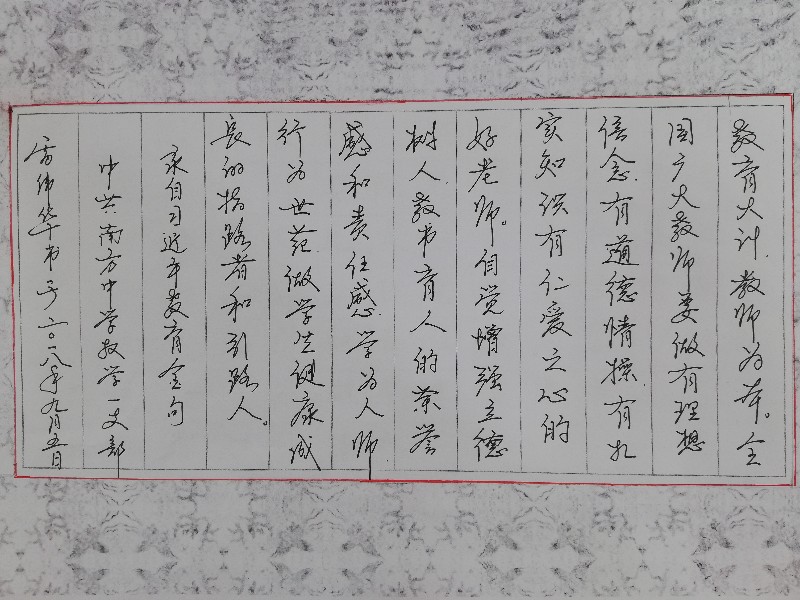 教育大计,教师为本。全
国广大教师要做有理想
信念,有道德情操,有扎
实知识,有仁爱之心的
好老师。自觉增强立德
树人,教书育人的荣誉
感和责任感,学为人师
行为世范,做学生健康成
长的指路者和引路人。
录自习近平教育金句
中共南方中学教学一支部
书于二〇一八年九月五日